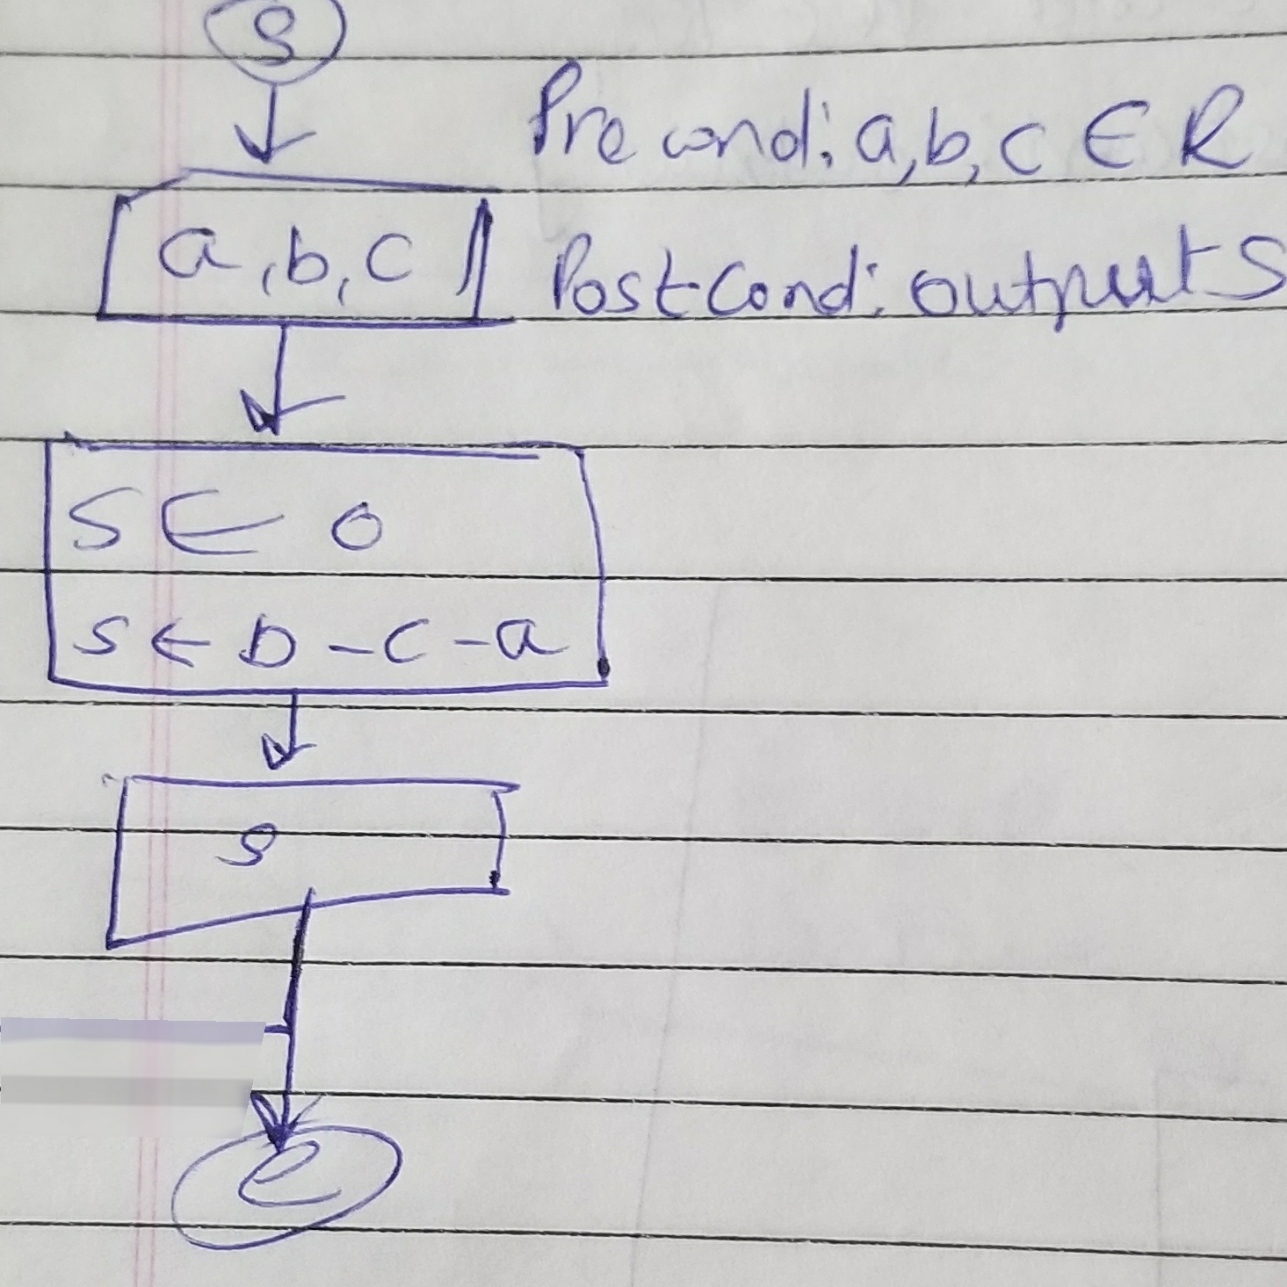 S
Pre cond: a,b,c ∈ R
a,b,c
PostCond: output S
S ← 0
S ← b - c - a
S
e